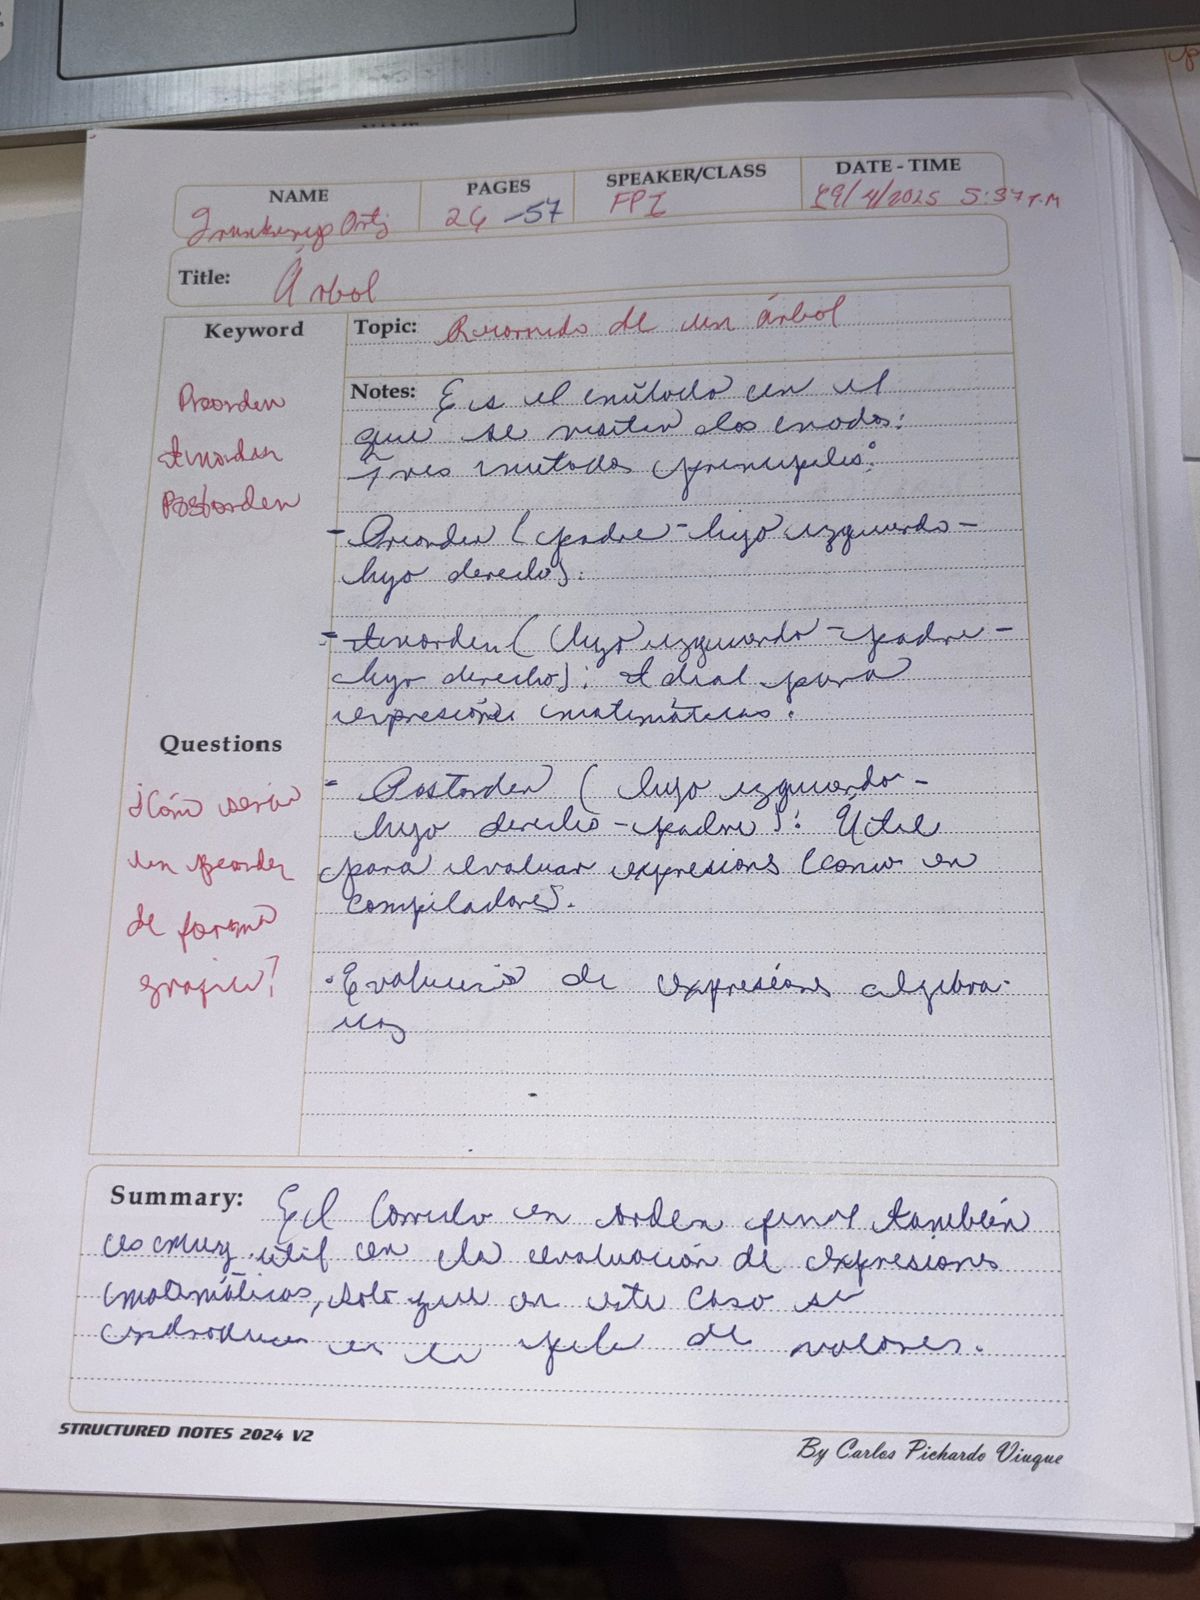 NAME
PAGES
SPEAKER/CLASS
DATE - TIME
Ortiz
26 - 57
FPI
19/4/2025 5:37 P.M
Title: Árbol
Keyword
Topic: Recorrido de un árbol
Preorden
Inorden
Postorden
Notes: Es el método en el
que se visitan los nodos:
Tres métodos principales:
- Preorden (padre - hijo izquierdo -
hijo derecho).
- Inorden (hijo izquierdo - padre -
hijo derecho): Ideal para
expresiones matemáticas.
- Postorden (hijo izquierdo -
hijo derecho - padre): Útil
para evaluar expresions (como en
compiladores).
· de expresiones algebra-
icas
Questions
¿Cóm seria
un preorden
de forma
grafica?
Summary: El en orden final también
es muy útil en la evaluación de expresiones
matemáticas, solo que en este caso se
en la pila de valores.
STRUCTURED NOTES 2024 V2
By Carlos Pichardo Viuque